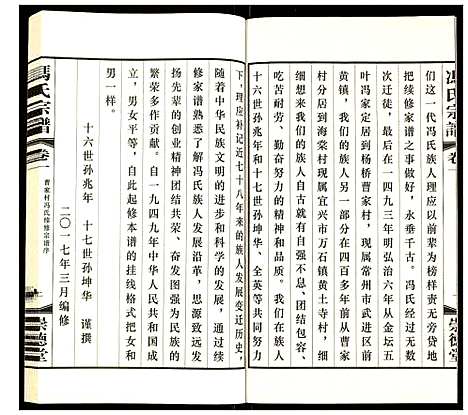 馮氏宗譜
卷一
崇德堂
们这一代冯氏族人理应以前辈为榜样
把续修家谱之事做好，永垂千古。冯氏经过无数
次迁徙，最后在一四九三年明弘治六年从金坛五
叶冯家定居到杨桥曹家村，现属常州市武进区前
黄镇，我们的族人另一部分在四百多年前从曹家
村分居到海棠村现属宜兴市万石镇黄土寺村，细
细想来我们的族人自古就有自强不息、团结包容、
吃苦耐劳、勤奋努力的精神和品质。我们在族人
十六世孙兆年、十七世孙坤华、全英等共同努力
下，理应补记近七十八年来的族人发展变迁历史，
随着中华民族文明的进步和科学的发展，通过续
修家谱，熟悉了解冯氏族人发展沿革，思源致远发
扬先辈的创业精神团结共荣、奋发图强为民族的
繁荣多作贡献。自一九四九年中华人民共和国成
立，男女平等，自此起修本谱的挂线格式把女和
男一样。
十六世孙兆年 十七世孙坤华 谨撰
二〇一七年三月编修
馮氏宗譜
卷一
曹家村冯氏续修宗谱序
崇德堂